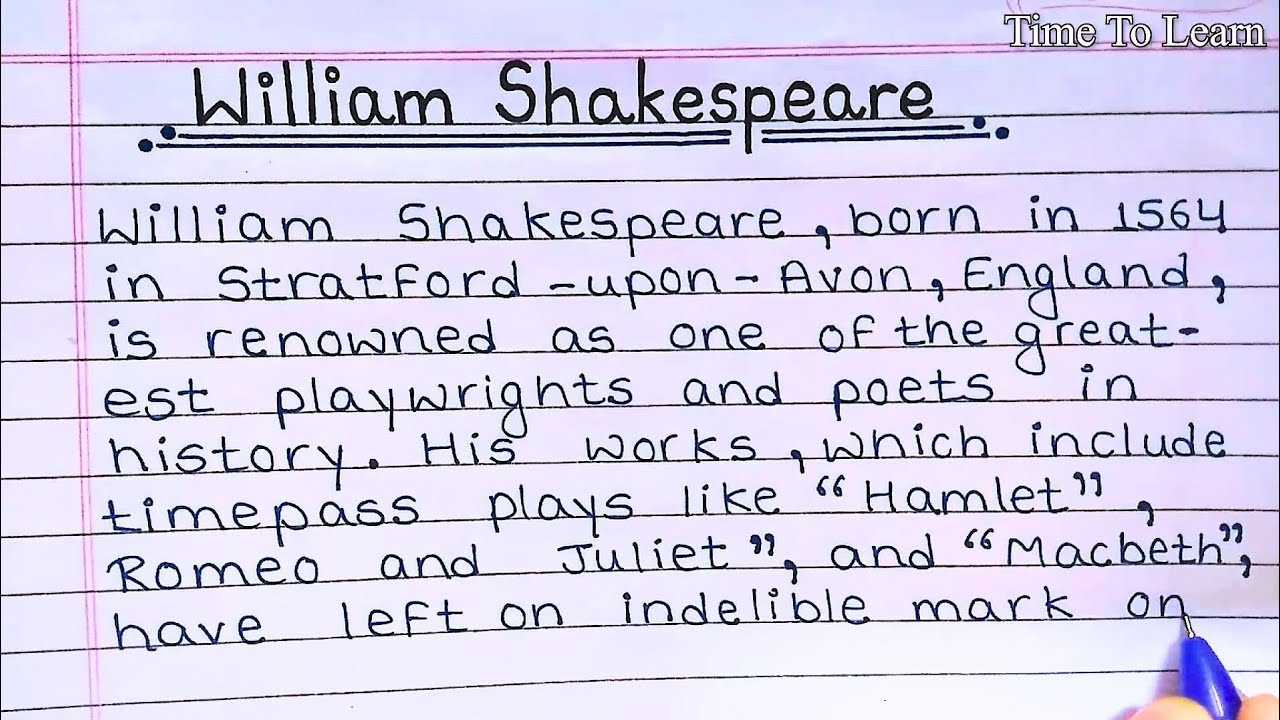 Time To Learn
William Shakespeare
William Shakespeare, born in 1564
in Stratford-upon-Avon, England,
is renowned as one of the great-
est playwrights and poets in
history. His works, which include
timepass plays like "Hamlet",
Romeo and Juliet", and "Macbeth",
have left on indelible mark on